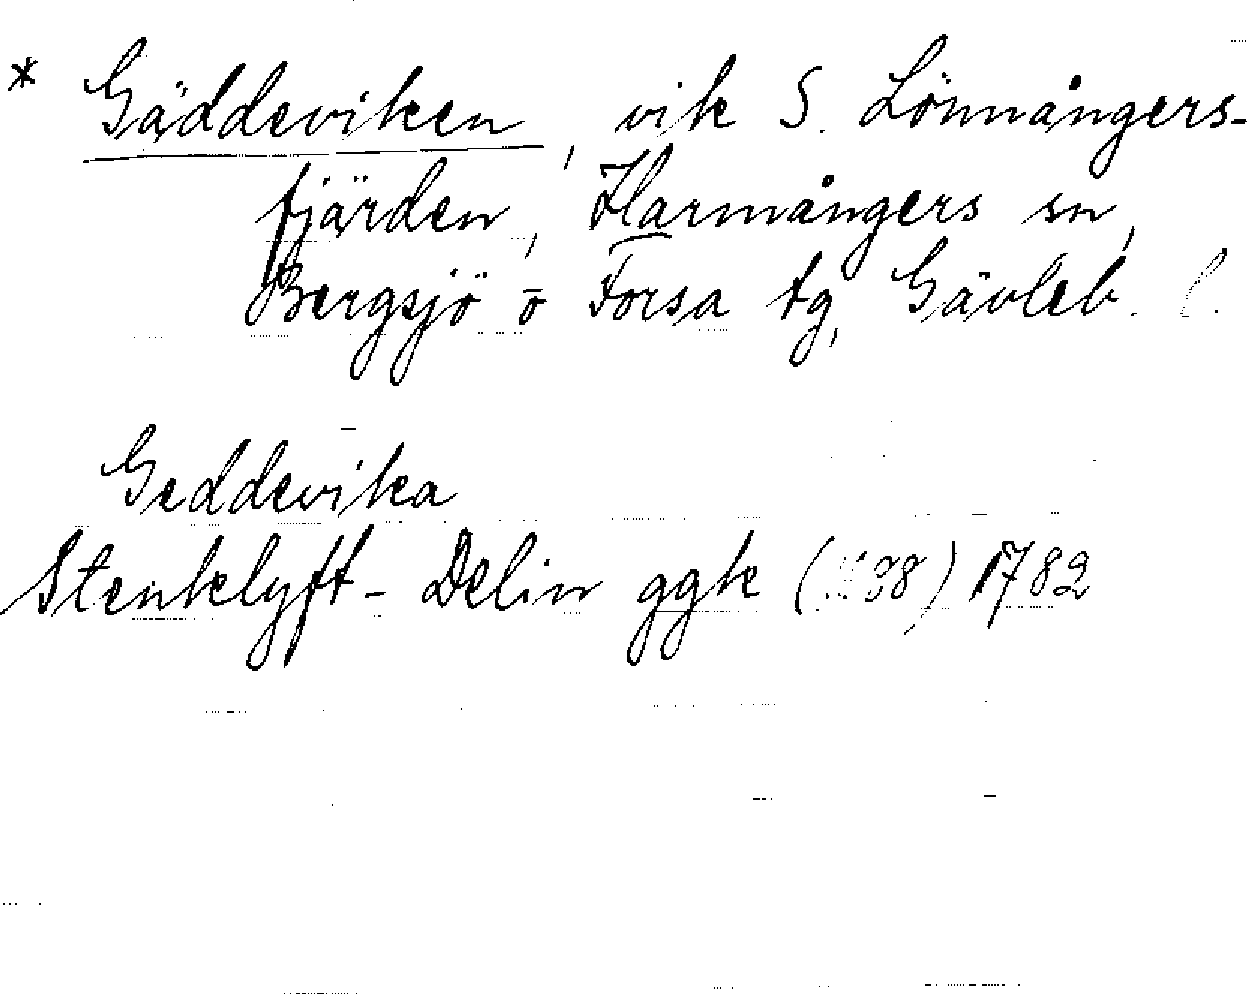 * Gäddeviken, vik S. Lönnångers-
fjärden, Harmångers sn,
Bergsjö o Forsa tg, Gävleb. l.
Geddevika
Stenklyft-Delin ggk ( 38) 1782